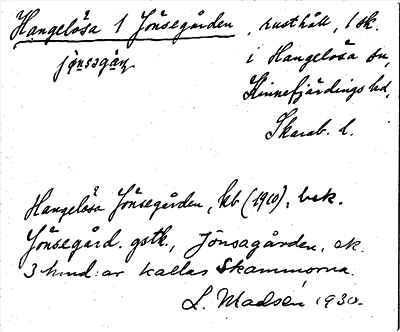 Hangelösa 1 Jönsegården, rusthåll, 1 sk.
jönsagåṇ
i Hangelösa sn,
Kinnefjärdings hd,
Skarab. l.
Hangelösa Jönsegården, kb (1910), bek.
Jönsegård. gstk., Jönsagården, ek.
3 hmd: ar kallas Skammorna.
L. Madsén 1930.